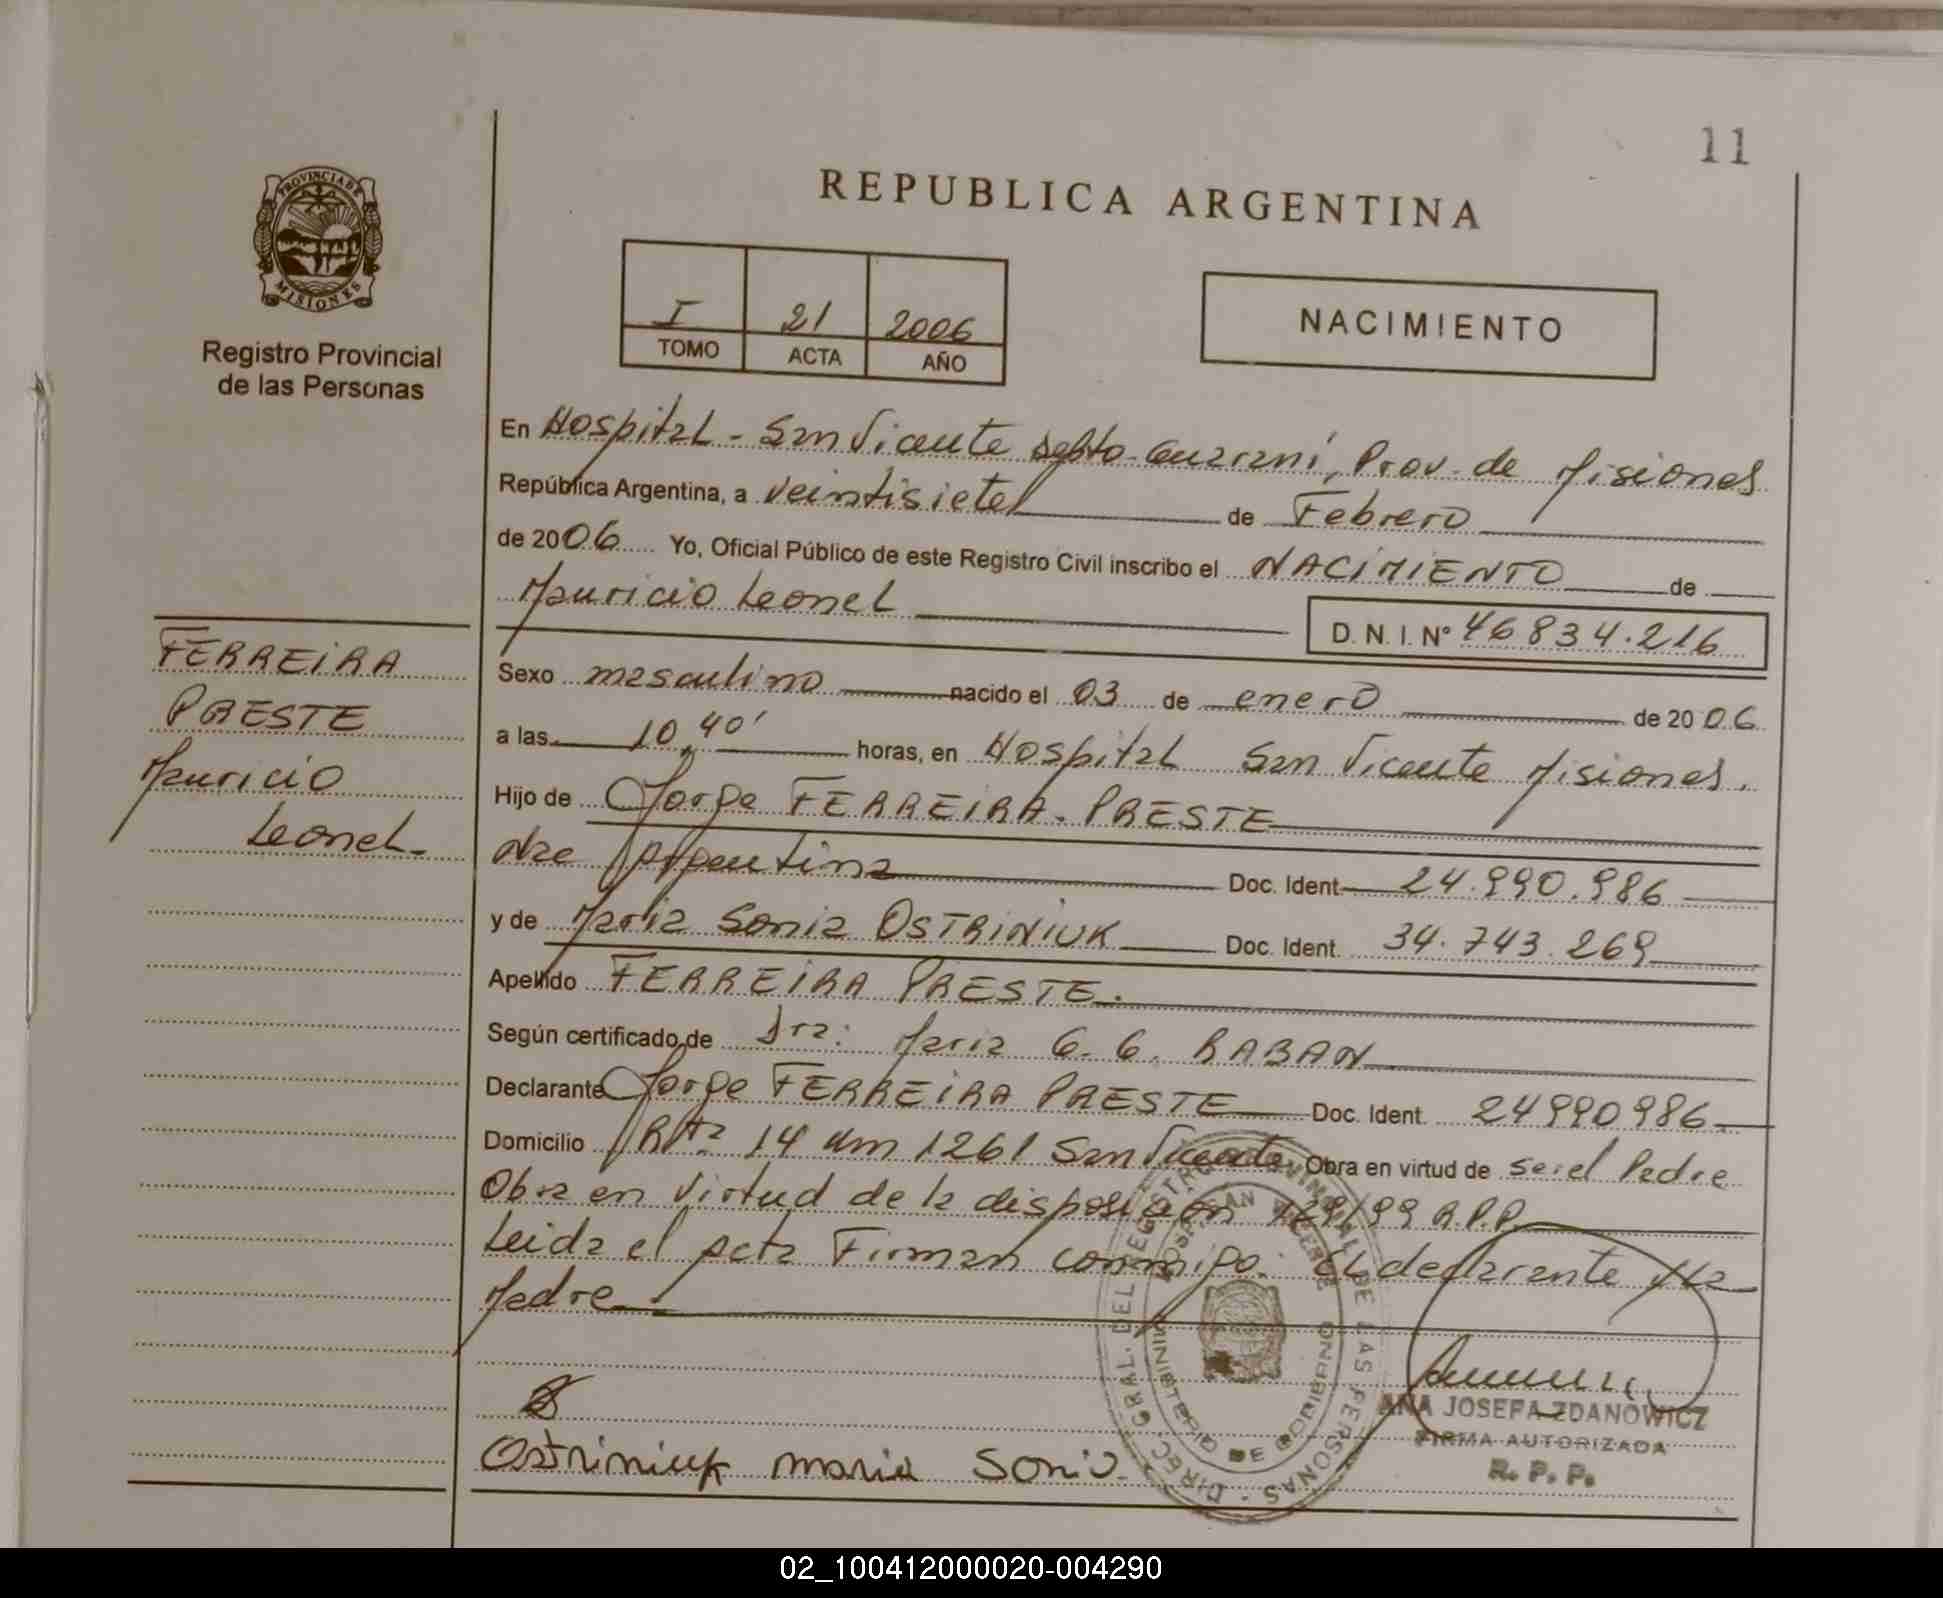 11
REPUBLICA ARGENTINA
PROVINCIA DE
MISIONES
Registro Provincial
de las Personas
I 21 2006
TOMO ACTA AÑO
NACIMIENTO
En Hospital - San Vicente Depto. Guaraní, Prov. de Misiones
República Argentina, a veintisiete de Febrero
de 2006 Yo, Oficial Público de este Registro Civil inscribo el NACIMIENTO de
Mauricio Leonel
D. N. I. Nº 46834.216
FERREIRA
PRESTE
Mauricio
Leonel-
Sexo masculino nacido el 03 de enero de 2006
a las 10,40' horas, en Hospital San Vicente Misiones.
Hijo de Jorge FERREIRA - PRESTE
Argentina Doc. Ident 24.990.986
y de Maria Sonia OSTRINIUK Doc. Ident. 34.743.269
Apellido FERREIRA PRESTE.
Según certificado de Dra: Maria G. G. RABAN
Declarante Jorge FERREIRA PRESTE Doc. Ident 24990986
Domicilio Rta 14 Km 1261 San Vicente Obra en virtud de ser el Padre
Obra en virtud de la disposición 129/99 R.P.P.
Leida el acta Firman conmigo. El declarante y La
Madre
Ostriniuk maria Sonia
DIREC. GRAL. DEL REGISTRO PROVINCIAL DE LAS PERSONAS
SAN VICENTE
MINISTERIO DE GOBIERNO
ANA JOSEFA ZDANOWICZ
FIRMA AUTORIZADA
R. P. P.
02_100412000020-004290